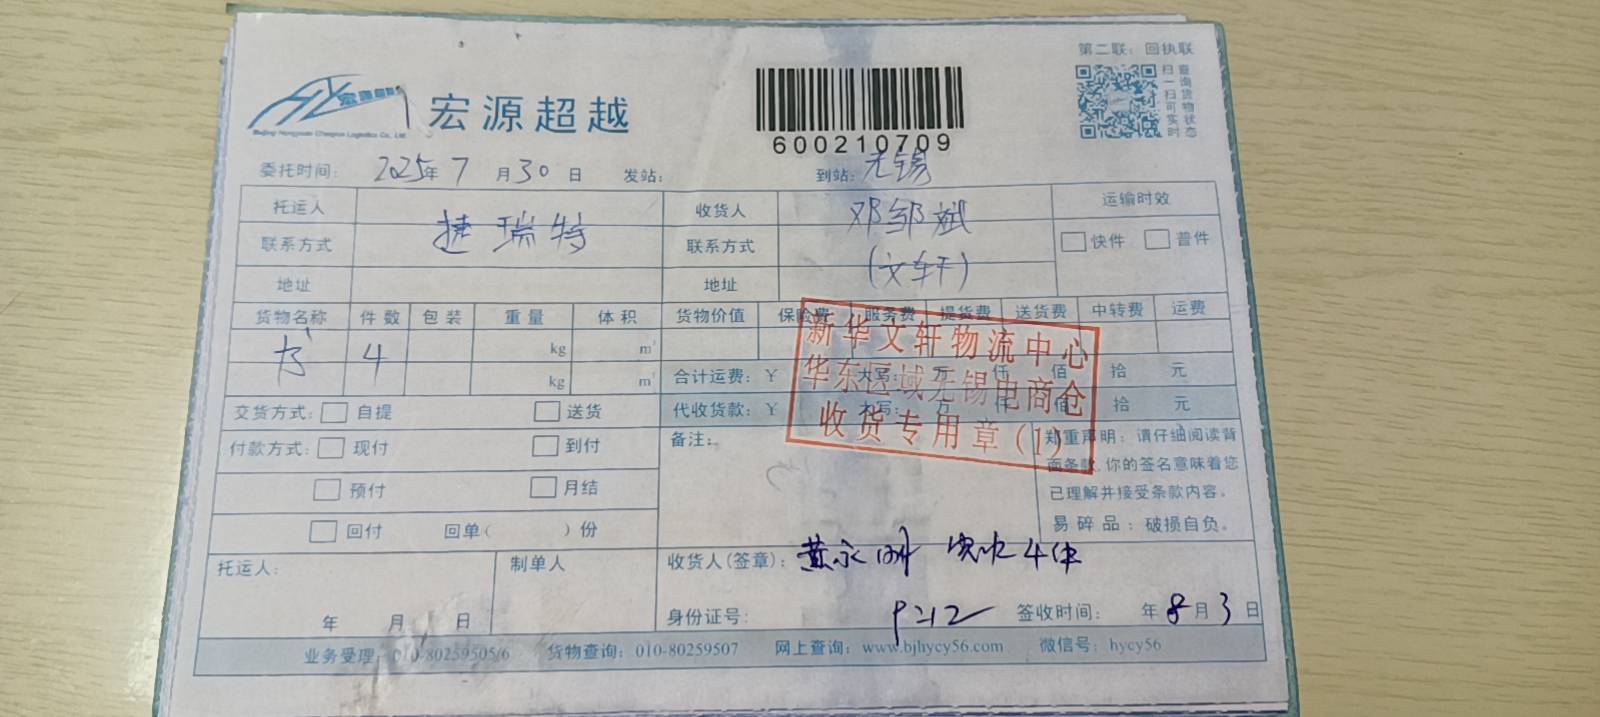 第二联：回执联
宏源超越
Beijing Hongyuan Chaoyue Logistics Co., Ltd.
600210709
扫一扫可实时
查询货物状态
委托时间： 2025年 7 月 30 日 发站： 到站：无锡
托运人 捷瑞特 收货人 邓邹斌 运输时效
联系方式 联系方式 (文轩) 快件 普件
地址 地址
货物名称 件数 包装 重量 体积 货物价值 保险费 服务费 提货费 送货费 中转费 运费
书 4 kg m³
kg m³
合计运费：￥ 大写： 万 仟 佰 拾 元
代收货款：￥ 大写： 万 仟 佰 拾 元
新华文轩物流中心
华东区域无锡电商仓
收货专用章(1)
交货方式： 自提 送货
付款方式： 现付 到付
预付 月结
回付 回单( )份
备注：
郑重声明：请仔细阅读背
面条款,你的签名意味着您
已理解并接受条款内容。
易碎品：破损自负。
托运人： 制单人 收货人(签章)： 黄永明 实收4件
年 月 日 身份证号： 签收时间： 年 8 月 3 日
业务受理：010-80259505/6 货物查询：010-80259507 网上查询：www.bjhycy56.com 微信号：hycy56